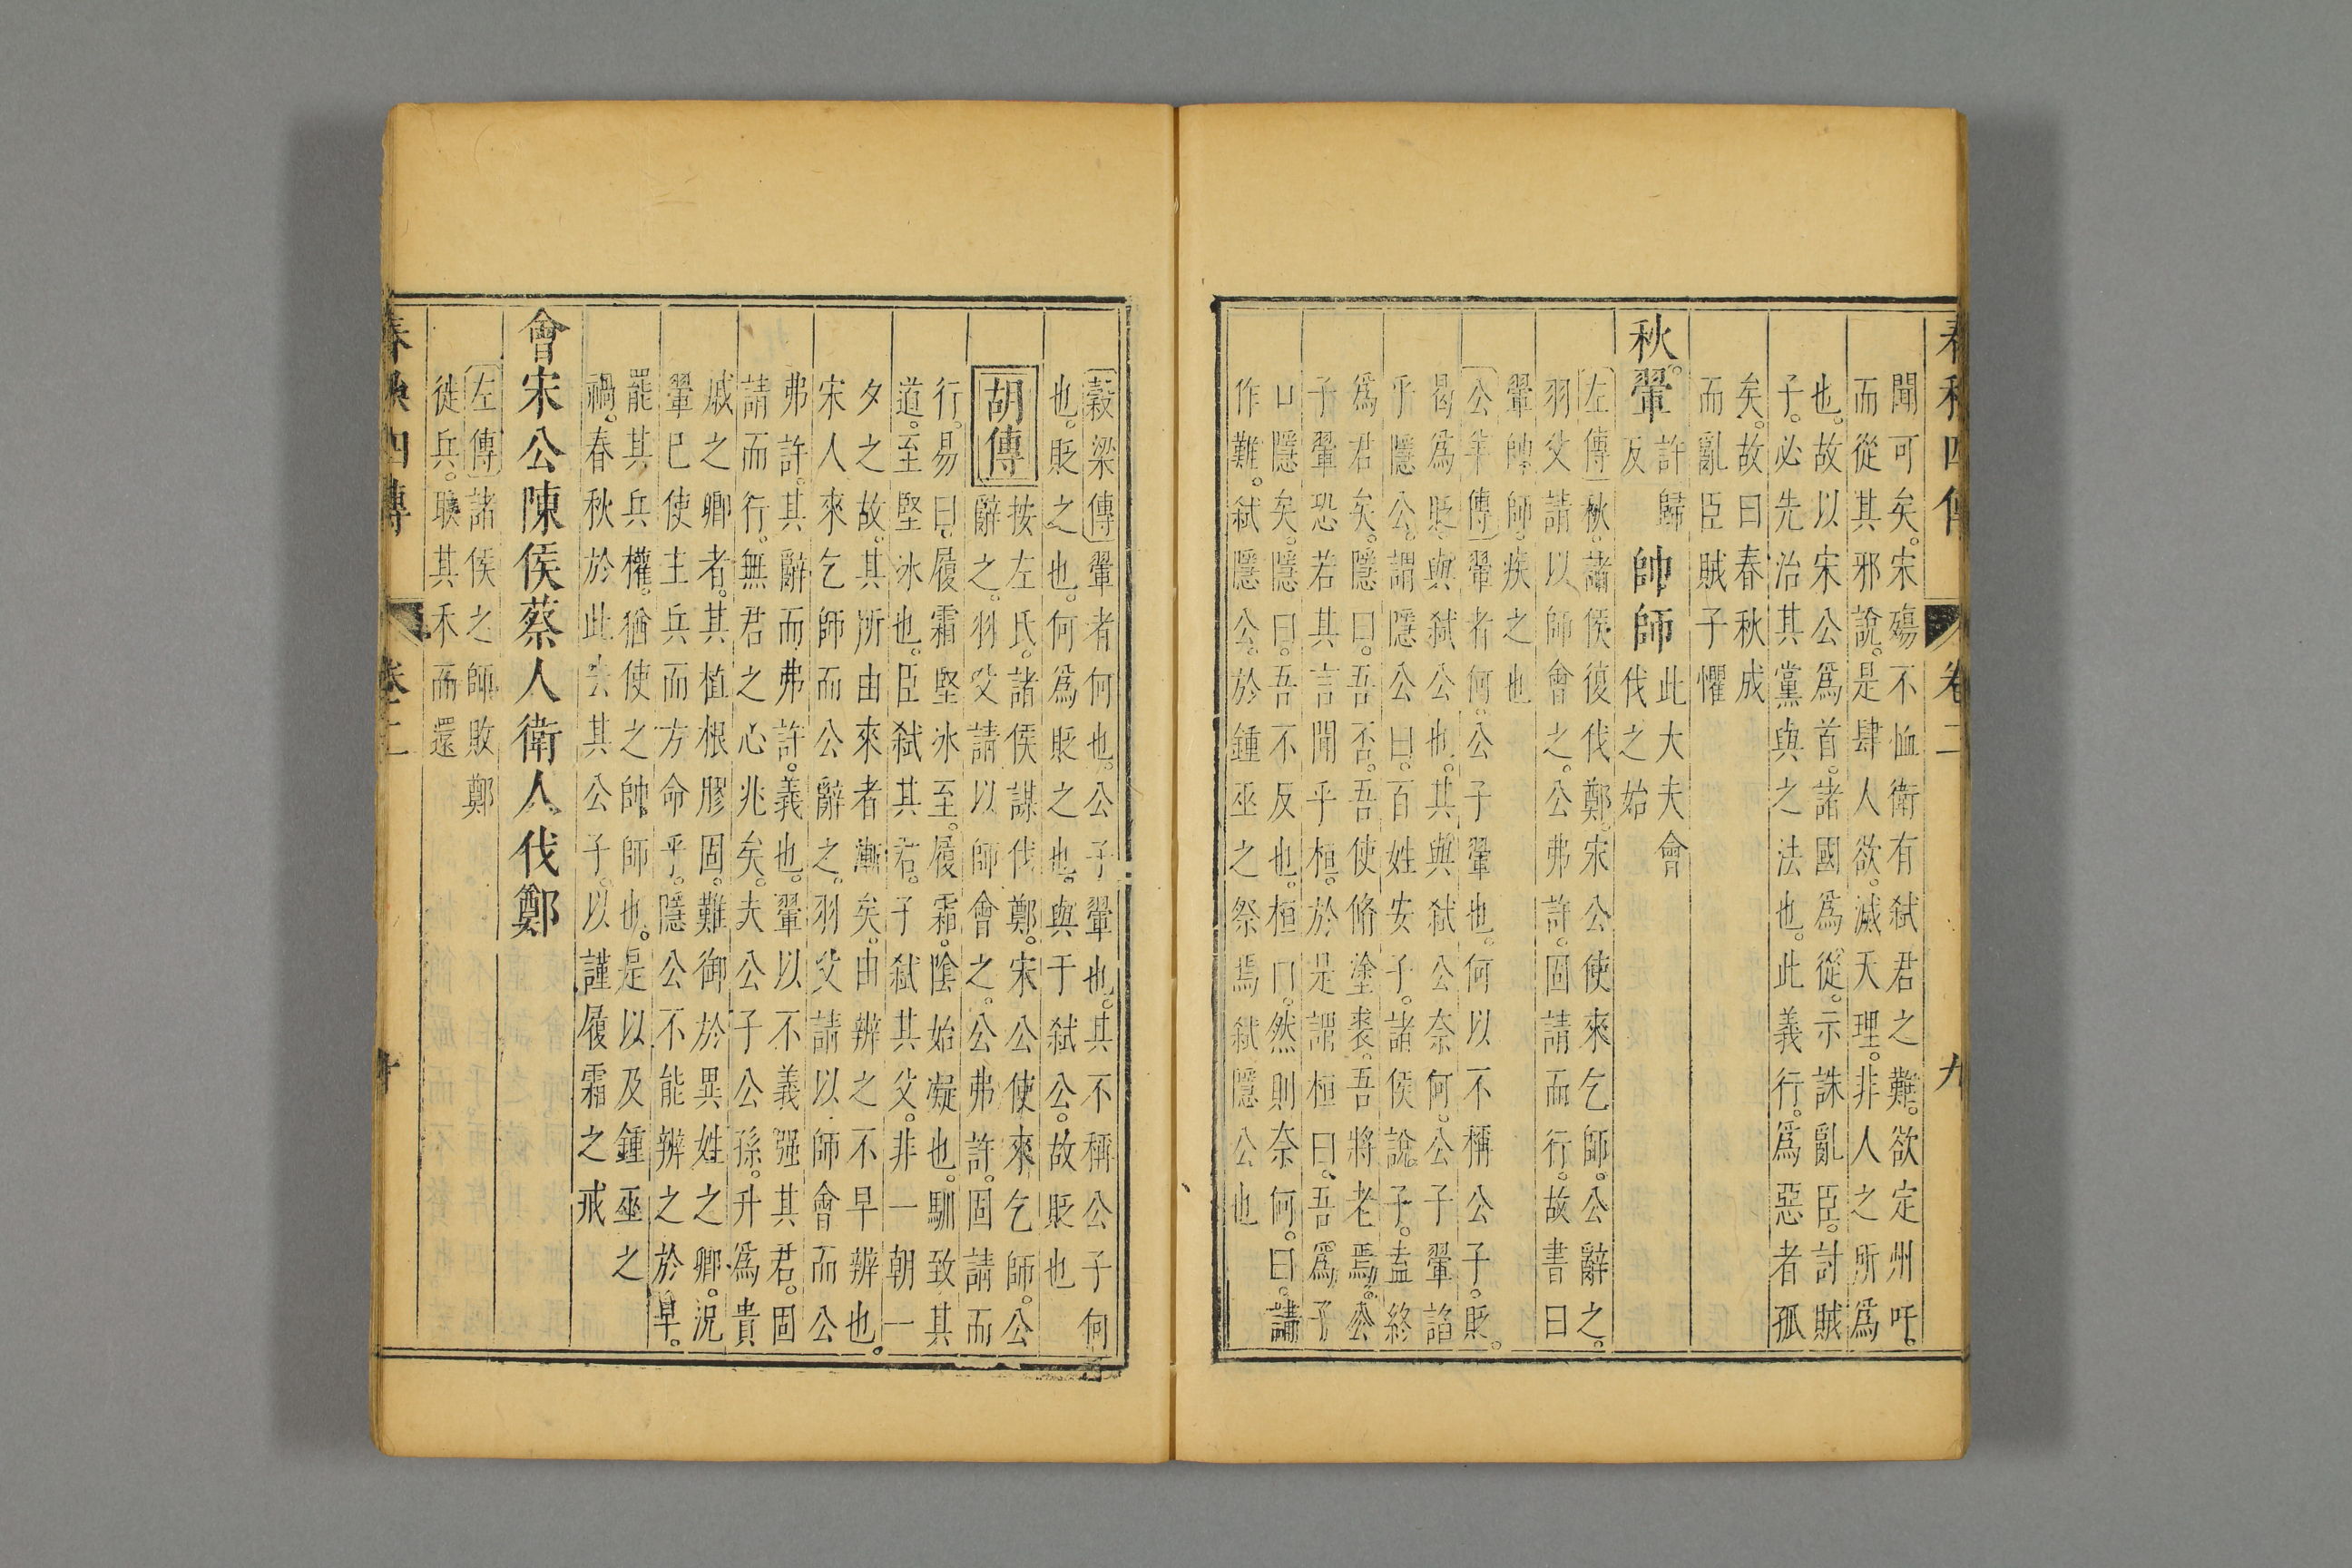 春秋四傳 卷二 九
聞可矣。宋殤不恤衛有弑君之難。欲定州吁。
而從其邪說。是肆人欲。滅天理。非人之所爲
也。故以宋公爲首。諸國爲從。示誅亂臣。討賊
子。必先治其黨與之法也。此義行。爲惡者孤
矣。故曰春秋成
而亂臣賊子懼
秋。翬許歸反帥師此大夫會伐之始
左傳秋。諸侯復伐鄭。宋公使來乞師。公辭之。
羽父請以師會之。公弗許。固請而行。故書曰
翬帥師。疾之也
公羊傳翬者何。公子翬也。何以不稱公子。貶。
曷爲貶。與弑公也。其與弑公奈何。公子翬諂
乎隱公。謂隱公曰。百姓安子。諸侯說子。盍終
爲君矣。隱曰。吾否。吾使脩塗裘。吾將老焉。公
子翬恐若其言聞乎桓。於是謂桓曰。吾爲子
口隱矣。隱曰。吾不反也。桓曰。然則奈何。曰。請
作難。弑隱公。於鍾巫之祭焉弑隱公也
穀梁傳翬者何也。公子翬也。其不稱公子何
也。貶之也。何爲貶之也。與于弑公。故貶也
胡傳按左氏。諸侯謀伐鄭。宋公使來乞師。公
辭之。羽父請以師會之。公弗許。固請而
行。易曰。履霜堅冰至。履霜。陰始凝也。馴致其
道。至堅冰也。臣弑其君。子弑其父。非一朝一
夕之故。其所由來者漸矣。由辨之不早辨也。
宋人來乞師而公辭之。羽父請以師會而公
弗許。其辭而弗許。義也。翬以不義强其君。固
請而行。無君之心兆矣。夫公子公孫。升爲貴
戚之卿者。其植根膠固。難御於異姓之卿。況
翬已使主兵而方命乎。隱公不能辨之於早。
罷其兵權。猶使之帥師也。是以及鍾巫之
禍。春秋於此去其公子。以謹履霜之戒
會宋公陳侯蔡人衛人伐鄭
左傳諸侯之師敗鄭
徒兵。取其禾而還
春秋四傳 卷二 十